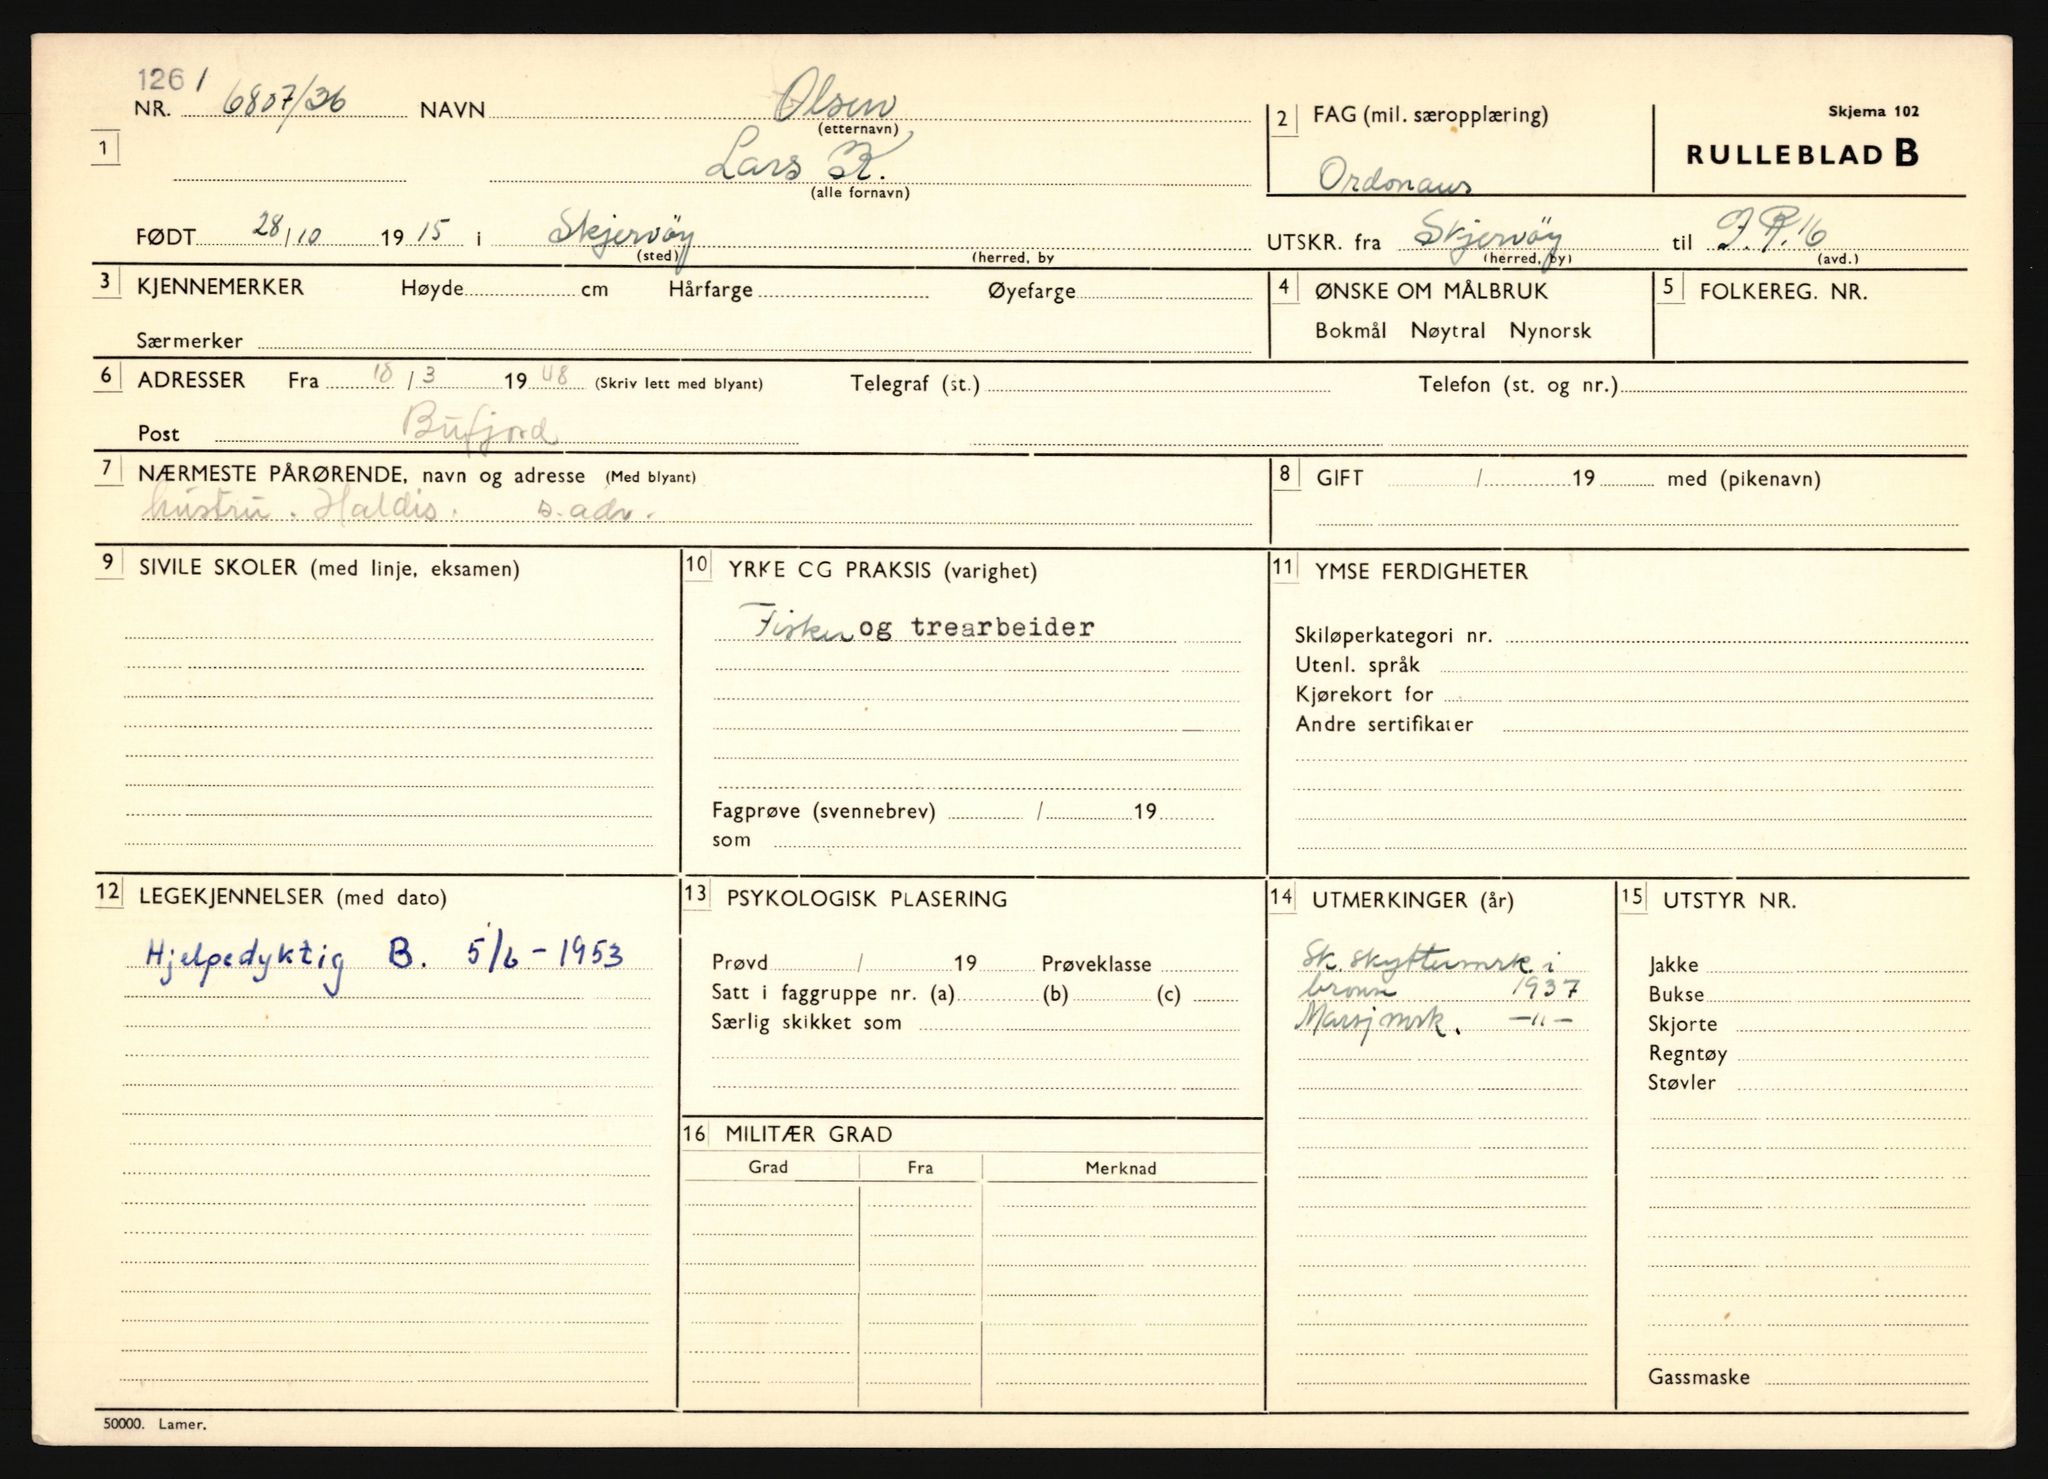 1261
NR. 6807/36 NAVN Olsen
(etternavn)
1
Lars K.
(alle fornavn)
2 FAG (mil. særopplæring)
Ordonans
Skjema 102
RULLEBLAD B
FØDT 28/10 1915 i Skjervöy
(sted) (herred, by
UTSKR. fra Skjervöy til I.R.16
(herred, by) (avd.)
3 KJENNEMERKER Høyde cm Hårfarge Øyefarge
Særmerker
4 ØNSKE OM MÅLBRUK
Bokmål Nøytral Nynorsk
5 FOLKEREG. NR.
6 ADRESSER Fra 18/3 1948 (Skriv lett med blyant) Telegraf (st.) Telefon (st. og nr.)
Post Bufjord
7 NÆRMESTE PÅRØRENDE, navn og adresse (Med blyant)
hustru. Haldis. s. adr.
8 GIFT / 19 med (pikenavn)
9 SIVILE SKOLER (med linje, eksamen)
10 YRKE CG PRAKSIS (varighet)
Fisker og trearbeider
Fagprøve (svennebrev) / 19
som
11 YMSE FERDIGHETER
Skiløperkategori nr.
Utenl. språk
Kjørekort for
Andre sertifikater
12 LEGEKJENNELSER (med dato)
Hjelpedyktig B. 5/6-1953
13 PSYKOLOGISK PLASERING
Prøvd / 19 Prøveklasse
Satt i faggruppe nr. (a) (b) (c)
Særlig skikket som
14 UTMERKINGER (år)
Sk. skyttermrk. i
bronse 1937
Marsjmrk. —"—
15 UTSTYR NR.
Jakke
Bukse
Skjorte
Regntøy
Støvler
Gassmaske
16 MILITÆR GRAD
Grad Fra Merknad
50000. Lamer.